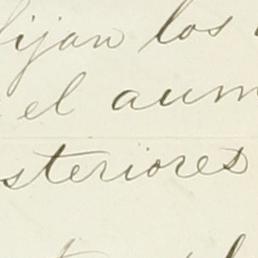 ijan los
el aum
steriores